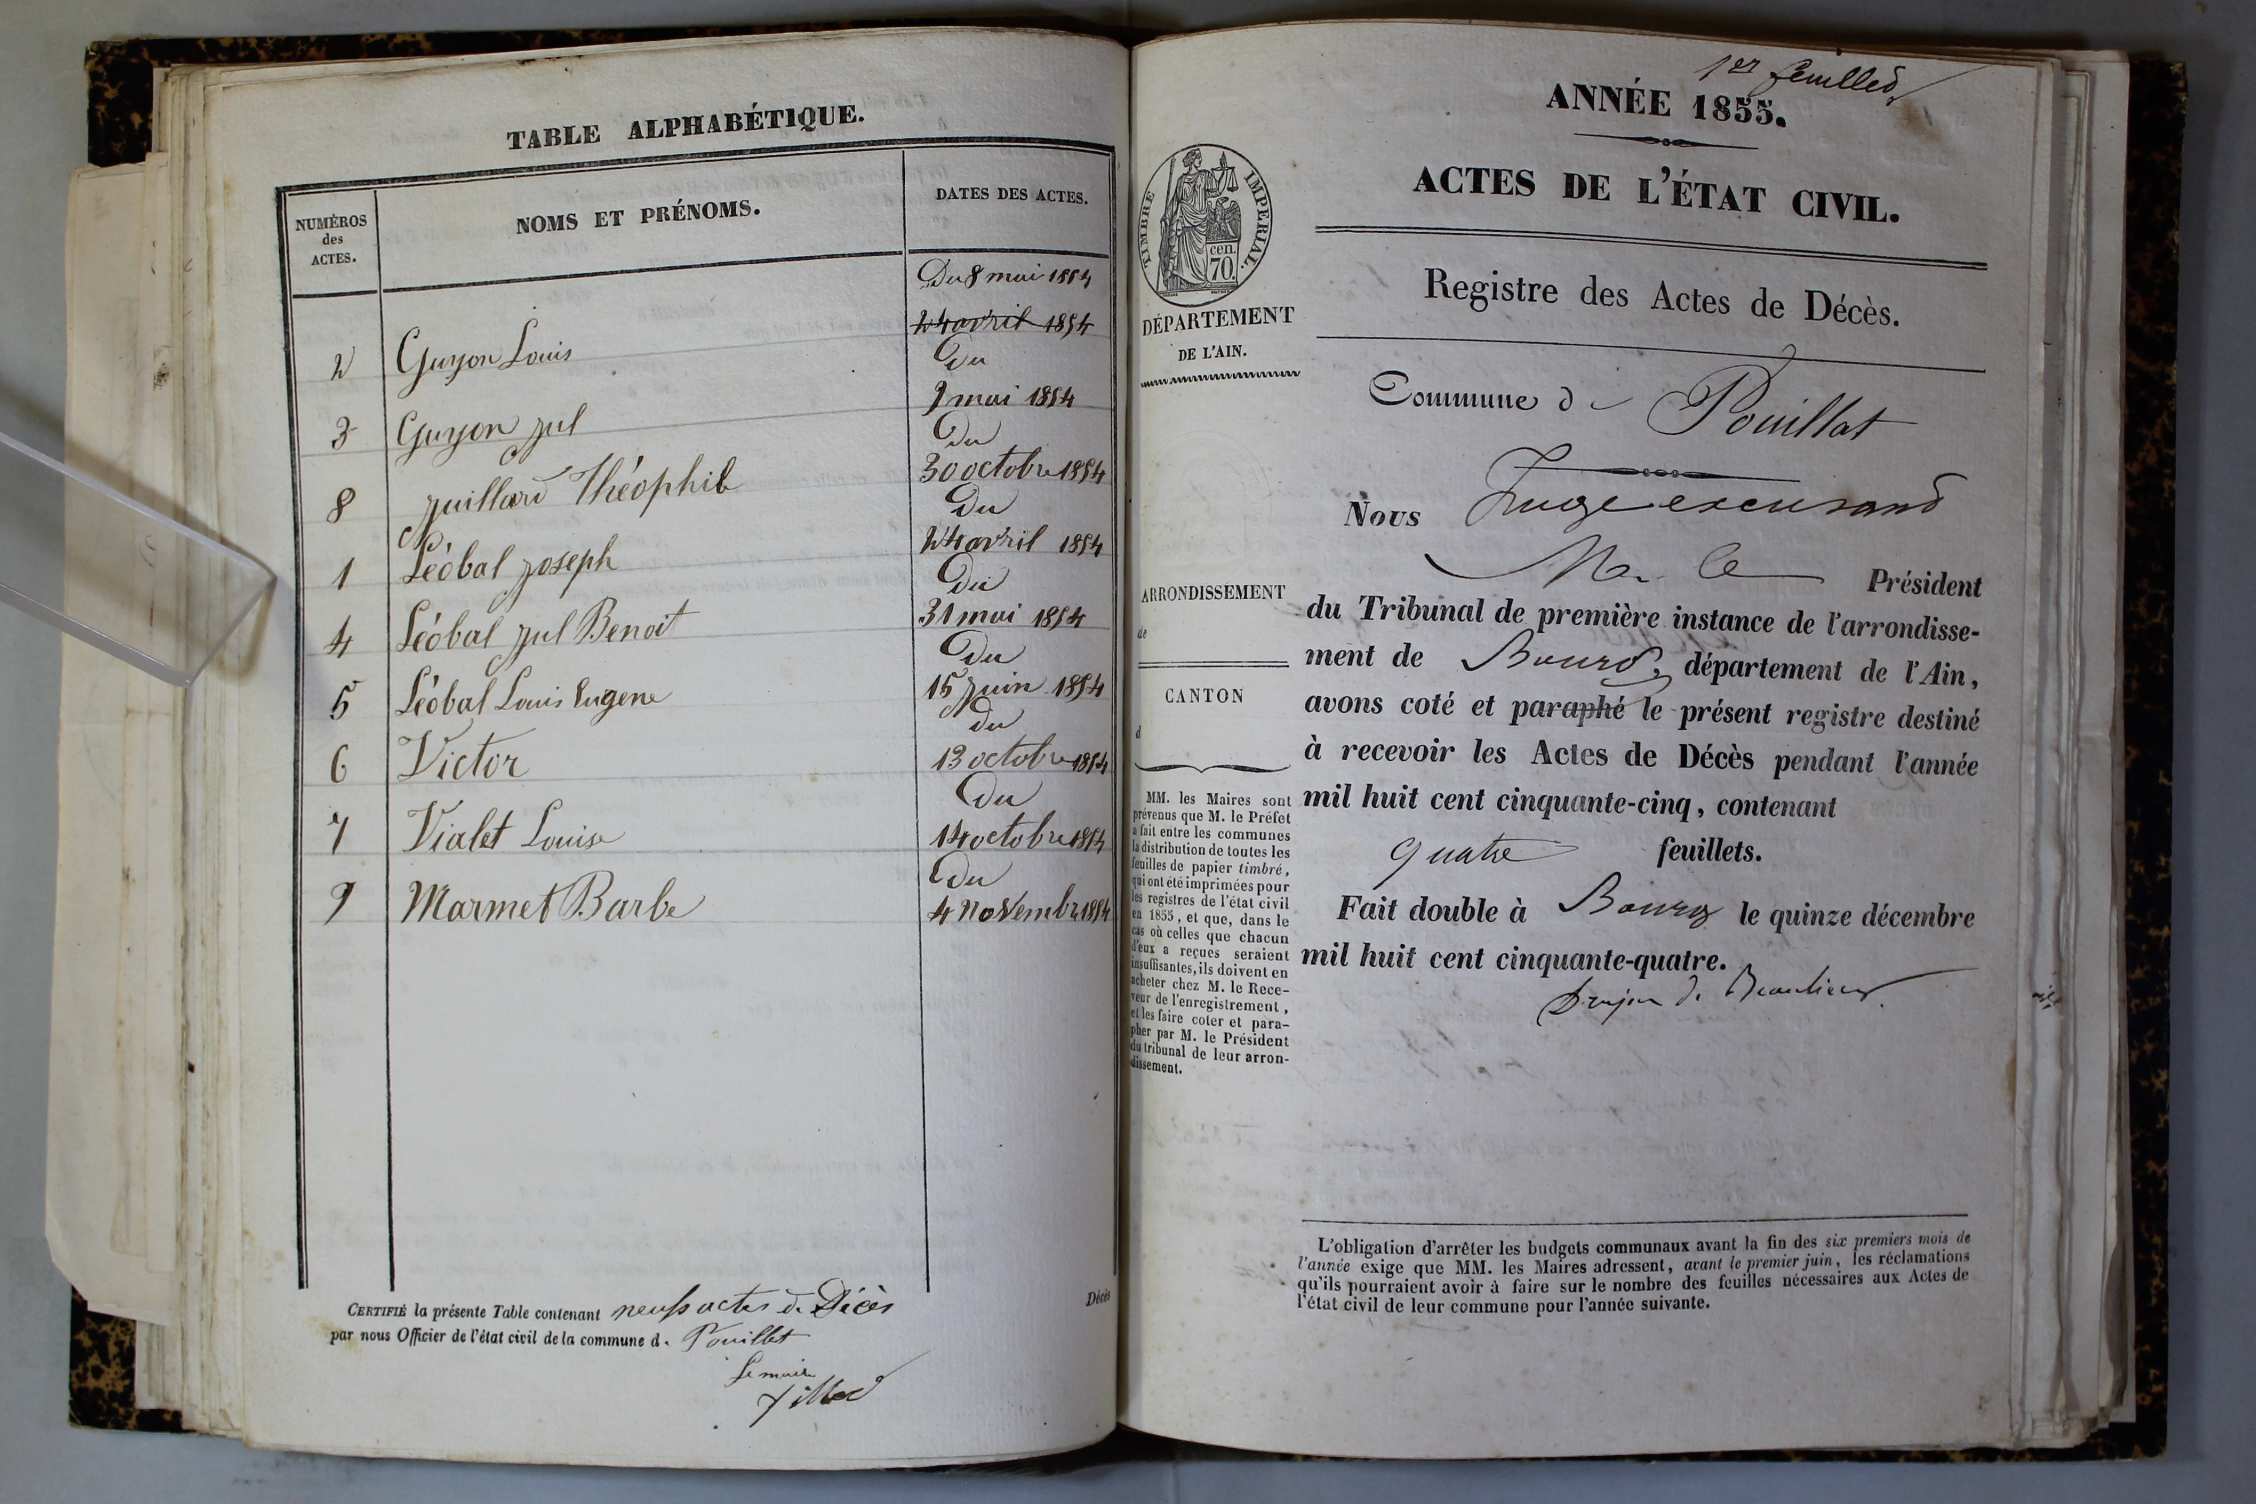 TABLE ALPHABÉTIQUE.
NUMÉROS des ACTES. NOMS ET PRÉNOMS. DATES DES ACTES.
Du 8 mai 1854
24 avril 1854
2 Guyon Louis Du
9 mai 1854
3 Guyon jul Du
30 octobre 1854
8 juillard Théophile Du
24 avril 1854
1 Léobal joseph Du
31 mai 1854
4 Léobal jul Benoit Du
15 juin 1854
5 Léobal Louis Eugene du
13 octobre 1854
6 Victor Du
7 Vialet Louise 14 octobre 1854
Du
9 Marmet Barbe 4 Novembre 1854
CERTIFIÉ la présente Table contenant neuf actes de Décès
par nous Officier de l'état civil de la commune d. Pouillat
Le maire
Décès
1er feuillet
ANNÉE 1855.
ACTES DE L'ÉTAT CIVIL.
Registre des Actes de Décès.
TIMBRE IMPERIAL.
cen.
70.
DÉPARTEMENT
DE L'AIN.
ARRONDISSEMENT
de
CANTON
d
MM. les Maires sont
prévenus que M. le Préfet
a fait entre les communes
la distribution de toutes les
feuilles de papier timbré,
qui ont été imprimées pour
les registres de l'état civil
en 1855, et que, dans le
cas où celles que chacun
d'eux a reçues seraient
insuffisantes, ils doivent en
acheter chez M. le Rece-
veur de l'enregistrement,
et les faire coter et para-
pher par M. le Président
du tribunal de leur arron-
dissement.
Commune de Pouillat
Nous Juge
Mr le Président
du Tribunal de première instance de l'arrondisse-
ment de Bourg, département de l'Ain,
avons coté et paraphé le présent registre destiné
à recevoir les Actes de Décès pendant l'année
mil huit cent cinquante-cinq, contenant
quatre feuillets.
Fait double à Bourg le quinze décembre
mil huit cent cinquante-quatre.
Drujon de Beaulieu
L'obligation d'arrêter les budgets communaux avant la fin des six premiers mois de
l'année exige que MM. les Maires adressent, avant le premier juin, les réclamations
qu'ils pourraient avoir à faire sur le nombre des feuilles nécessaires aux Actes de
l'état civil de leur commune pour l'année suivante.